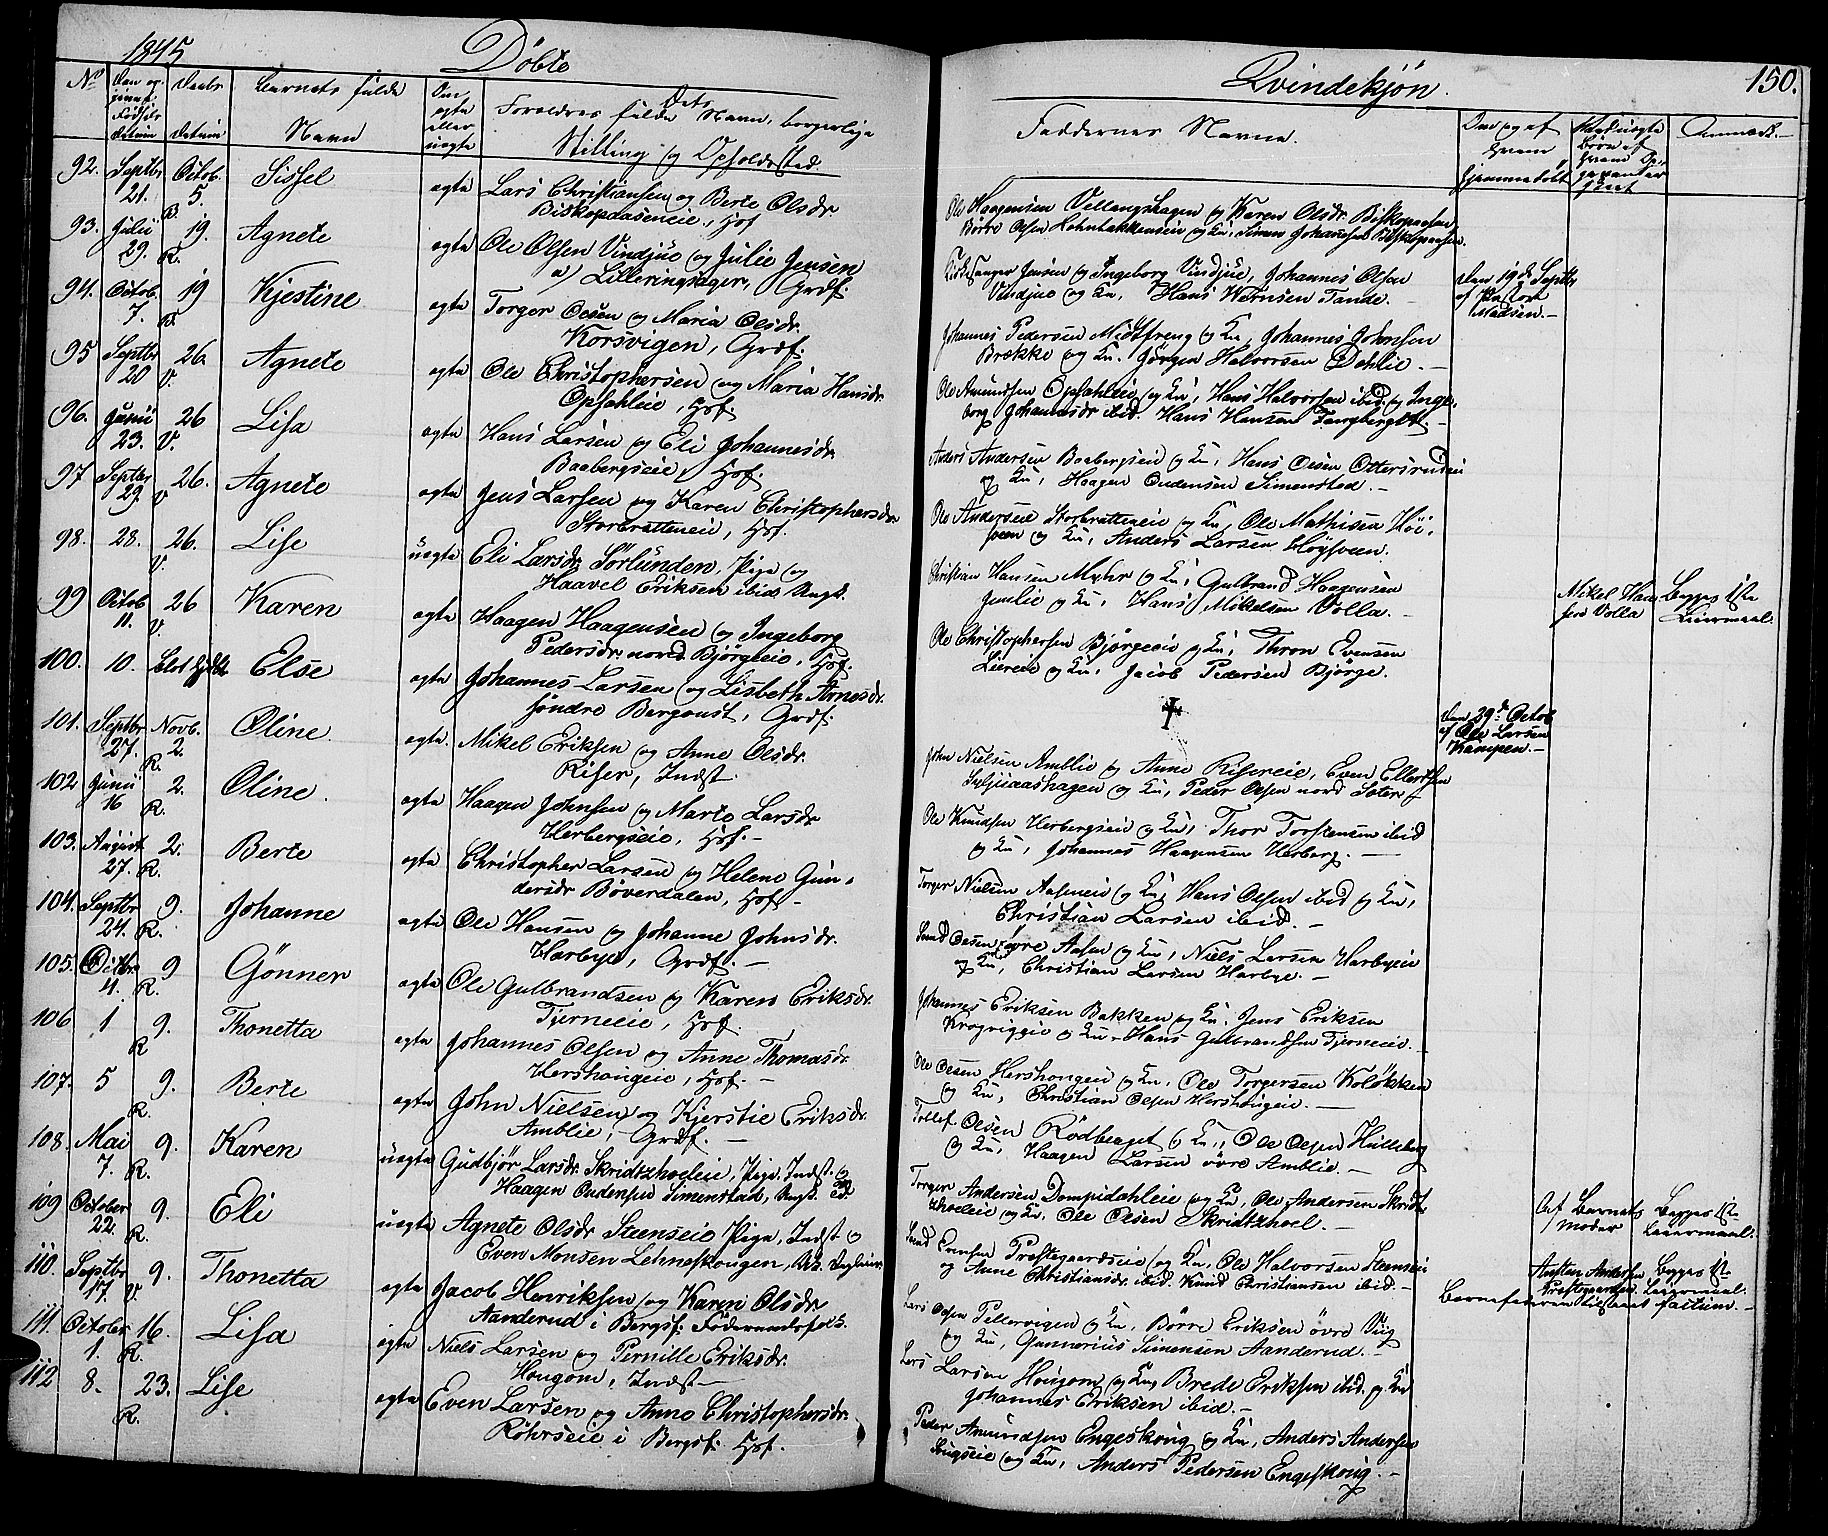 1845
Döbte
Qvindekjön.
150.
No Daabs Barnets fulde Forældres fulde Navn, borgerlige
Datum Navn Stilling og Opholdssted.
Faddernes Navne.
92. Septbr 21. Octob. 5. Sissel ægte Lars Christiansen og Berte Olsdr
Biskopaaseneie, Hof
Ole Haagensen Vellangshagen og Karen Olsdr Biskopaasen
93. Julii 29. 19. R. Agnete ægte Ole Olsen Vindjue og Julie Jensen
Lilleringsager, Grdf.
Jensen og Ingeborg Vindjue, Johannes Olsen
Vindjue og Ku, Hans Tande.
Den 19de Septbr
af Pastor
Madsen.
94. Octob. 7. 19 Kjestine ægte Torger Olsen og Maria Olsdr.
Korsvigen, Grdf.
Johannes Pedersen Midtfreng og Ku, Johannes Johnsen
Brække og Ku. Jörgen Halvorsen Dahlie.
95 Septbr 20 26. V. Agnete ægte Ole Christophersen og Maria Hansdr.
Opsahleie, Hof.
Ole Amundsen Opsahleie og Ku, Hans Halvorsen ibid. og Inge-
borg Johannesdr ibid. Hans Hansen
96. Junii 23. 26 V. Lisa ægte Hans Larsen og Eli Johannesdr.
Baabergseie, Hof.
Anders Andersen Baabergseie og Ku, Hans Olsen Ottersrudeie
og Ku, Haagen Oudensen Simenstad.
97 Septbr 29. 26. V Agnete ægte Jens Larsen og Karen Christophersdr
Storbratteneie, Hof.
Ole Andersen Storbratteneie og Ku, Ole Mathisen Höi-
sveen og Ku, Anders Larsen Höysveen.
98. 28. 26. V. Lise uægte Eli Larsdr Sörlunden, Pige og
Haavel Eriksen ibid Ungk.
Christian Hansen Myhr og Ku, Gulbrand Haagensen
Jemlie og Ku, Hans Mikelsen Volla.
Mikel Han-
sen Volla
Begges 1ste
Leiermaal.
99 Octob 11. 26 V. Karen ægte Haagen Haagensen og Ingeborg
Pedersdr. nord Bjørgeeie, Hof.
Ole Christophersen Bjørgeeie og Ku, Thron Evensen
Liereie og Ku, Jacob Pedersen Bjørge.
100. 10. Else ægte Johannes Larsen og Lisbeth Arnesdr.
söndre Bergoust, Grdf.
†
Den 29de Octob
af Ole Larsen
Kampen.
101. Septbr 27. Novb. 2. R. Oline. ægte. Mikel Eriksen og Anne Olsdr.
Riser, Indst.
John Nielsen Amblie og Anne Risereie, Even Ellertsen
og Ku, Peder Olsen nord Soter
102 Junii 16 2. R. Oline. ægte Haagen Johnsen og Marte Larsdr
Herbergseie, Hof.
Ole Knudsen Herbergseie og Ku, Thor Torstensen ibid
og Ku, Johannes Haagensen Herberg.
103. August 27. 2. R. Berte ægte Christopher Larsen og Helene Gun-
dersdr Böverdalen, Hof
Torger Nielsen Aaseneie og Ku, Hans Olsen ibid og Ku,
Christian Larsen ibid.
104. Septbr 24. 9. R. Johanne ægte Ole Hansen og Johanne Johnsdr.
Harbye, Grdf.
Olsen övre Aasen og Ku, Niels Larsen Harbyeie
og Ku, Christian Larsen Harbye.
105. Octbr 4. 9 R. Gönner ægte Ole Gulbrandsen og Karen Eriksdr.
Tjerneeie, Hof.
Johannes Eriksen Bakken og Ku. Jens Eriksen
og Ku. Hans Gulbrandsen Tjerneeie.
106 1 9. R Thonetta ægte Johannes Olsen og Anne Thomasdr.
Hershougeie, Hof.
Ole Olsen Hershougeie og Ku, Ole Torgersen Kolökken
og Ku, Christian Olsen Hershougeie.
107. 5 9. R. Berte ægte John Nielsen og Kjerstie Eriksdr.
Amblie, Grdf.
Tollef Olsen Rödberget og Ku, Ole Olsen Hulleberg
og Ku, Haagen Larsen övre Amblie.
108. Mai 7. 9. R. Karen uægte Gudbjör Larsdr. Skridtshoeleie, Pige, Indst. og
Haagen Oudensen Simenstad, Ungk.
Torger Andersen Dompidahleie og Ku, Ole Andersen Skridts-
hoeleie og Ku. Ole Olsen Skridtshoel.
Af Barnets
Moder
Begges 1ste
Leiermaal.
109 October 22. 9. R. Eli uægte Agnete Olsdr Steenseie Pige, Indst og
Even Monsen Lehneskougen,
Evensen Præstegaardseie og Ku, Ole Halvorsen Steenseie
og Anne Christiansdr. ibid. Knud Christiansen ibid.
Austen Andersen
Præstegaarden.
Begges 1ste
Leiermaal.
Barnefaderen
110. Septbr 17. 9. V. Thonetta ægte Jacob Henriksen og Karen Olsdr
Aanderud i Bergsf. Föderaadsfolk.
Lars Olsen Pellervigen og Ku. Börre Eriksen övre Viig
og Ku, Gunnerius Simensen Aanderud.
111. October 1. 16. R. Lisa ægte Niels Larsen og Pernille Eriksdr.
Hougom, Indst
Lars Larsen Hougom og Ku, Brede Eriksen ibid. og Ku
Johannes Eriksen ibid.
112 8. 23. R. Lise ægte Even Larsen og Anne Christophersdr.
Röhrseie i Bergsf. Hof.
Peder Amundsen Engeskoug og Ku, Anders Andersen
og Ku, Anders Pedersen Engeskoug.